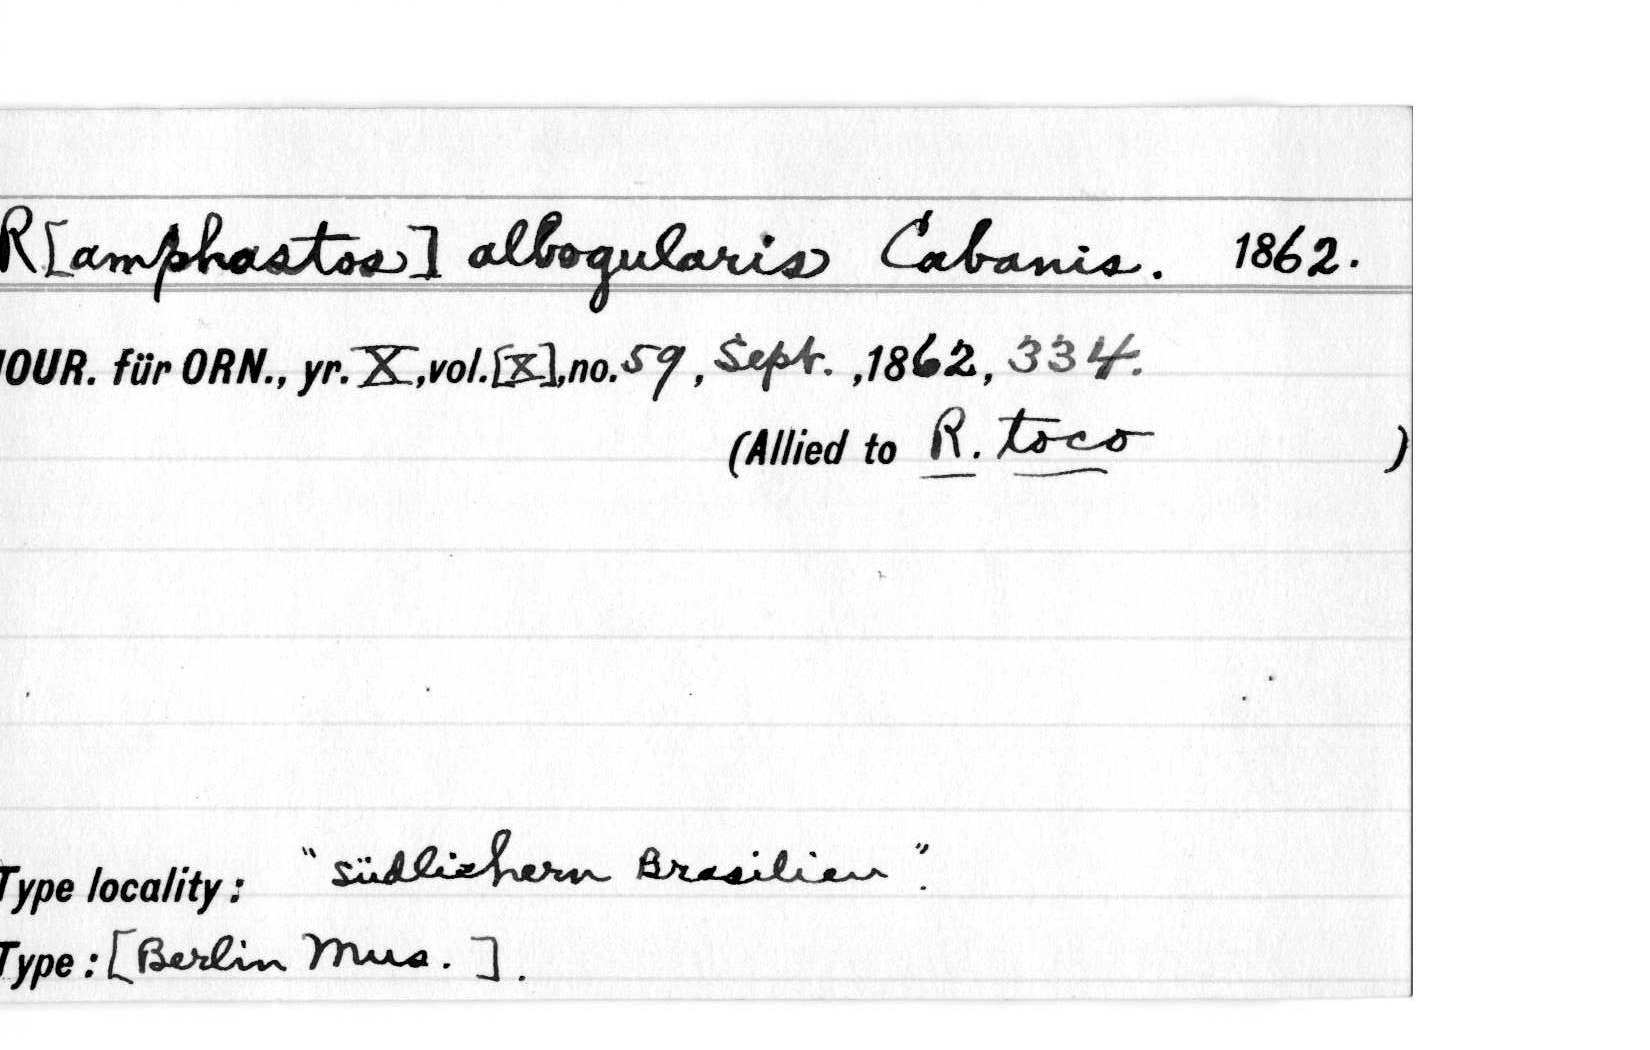 R[amphastos] albogularis Cabanis. 1862.
JOUR. für ORN., yr. X, vol.[X], no. 59, Sept., 1862, 334.
(Allied to R. toco )
Type locality: "südlichern Brasilien".
Type: [Berlin Mus.].